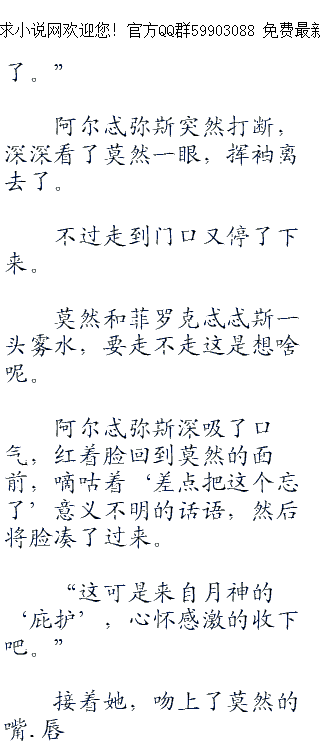 求小说网欢迎您！官方QQ群59903088 免费最新
了。”
阿尔忒弥斯突然打断，
深深看了莫然一眼，挥袖离
去了。
不过走到门口又停了下
来。
莫然和菲罗克忒忒斯一
头雾水，要走不走这是想啥
呢。
阿尔忒弥斯深吸了口
气，红着脸回到莫然的面
前，嘀咕着‘差点把这个忘
了’意义不明的话语，然后
将脸凑了过来。
“这可是来自月神的
‘庇护’，心怀感激的收下
吧。”
接着她，吻上了莫然的
嘴.唇